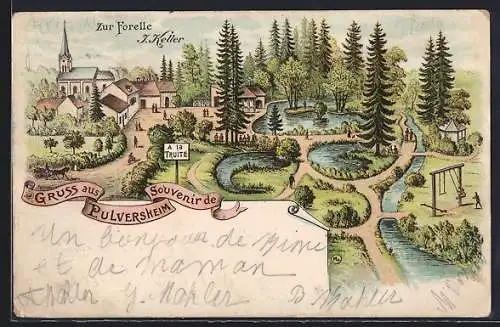 Zur Forelle
J. Keller
A la
TRUITE
GRUSS aus
PULVERSHEIM
Souvenir de
Un bonjour de Mimi
et de maman